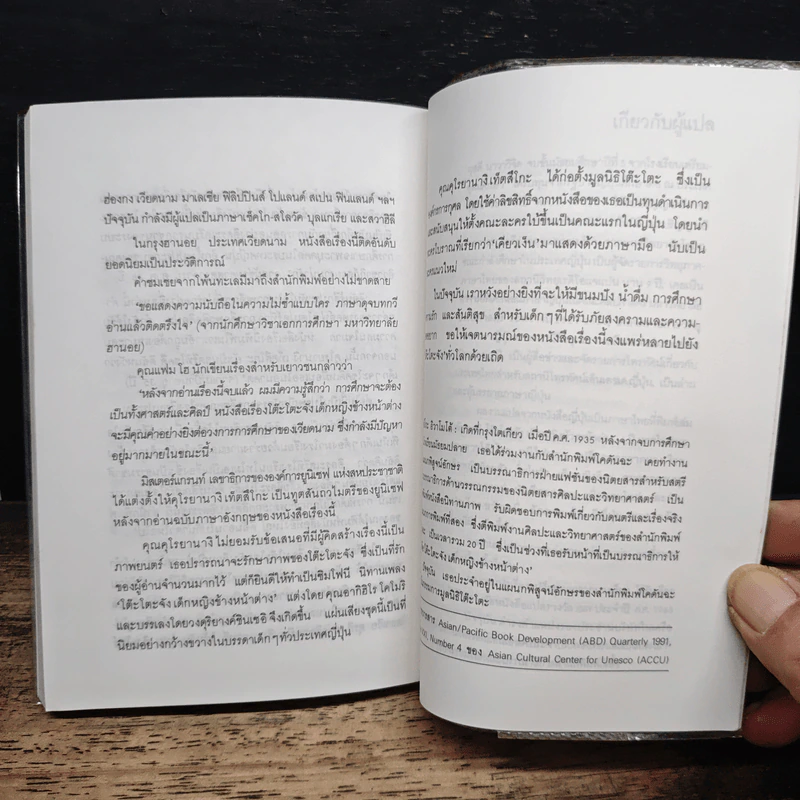 ฮ่องกง เวียดนาม มาเลเซีย ฟิลิปปินส์ โปแลนด์ สเปน ฟินแลนด์ ฯลฯ
ปัจจุบัน กำลังมีผู้แปลเป็นภาษาเช็คโก-สโลวัค บุลแกเรีย และสวาฮิลี
ในกรุงฮานอย ประเทศเวียดนาม หนังสือเรื่องนี้ติดอันดับ
ยอดนิยมเป็นประวัติการณ์
คำชมเชยจากโพ้นทะเลมีมาถึงสำนักพิมพ์อย่างไม่ขาดสาย
‘ขอแสดงความนับถือในความไม่ซ้ำแบบใคร ภาษาดุจบทกวี
อ่านแล้วติดตรึงใจ’ (จากนักศึกษาวิชาเอกการศึกษา มหาวิทยาลัย
ฮานอย)
คุณแฟม โฮ นักเขียนเรื่องสำหรับเยาวชนกล่าวว่า
‘หลังจากอ่านเรื่องนี้จบแล้ว ผมมีความรู้สึกว่า การศึกษาจะต้อง
เป็นทั้งศาสตร์และศิลป์ หนังสือเรื่องโต๊ะโตะจัง เด็กหญิงข้างหน้าต่าง
จะมีคุณค่าอย่างยิ่งต่อวงการการศึกษาของเวียดนาม ซึ่งกำลังมีปัญหา
อยู่มากมายในขณะนี้’
มิสเตอร์แกรนท์ เลขาธิการขององค์การยูนิเซฟ แห่งสหประชาชาติ
ได้แต่งตั้งให้คุโรยานางิ เท็ตสึโกะ เป็นทูตสันถวไมตรีของยูนิเซฟ
หลังจากอ่านฉบับภาษาอังกฤษของหนังสือเรื่องนี้
คุณคุโรยานางิ ไม่ยอมรับข้อเสนอที่มีผู้คิดสร้างเรื่องนี้เป็น
ภาพยนตร์ เธอปรารถนาจะรักษาภาพของโต๊ะโตะจัง ซึ่งเป็นที่รัก
ของผู้อ่านจำนวนมากไว้ แต่ก็ยินดีให้ทำเป็นซิมโฟนี นิทานเพลง
‘โต๊ะโตะจัง เด็กหญิงข้างหน้าต่าง’ แต่งโดย คุณอากิฮิโร โคโมริ
และบรรเลงโดยวงดุริยางค์ชินเซอิ จึงเกิดขึ้น แผ่นเสียงชุดนี้เป็นที่
นิยมอย่างกว้างขวางในบรรดาเด็กๆ ทั่วประเทศญี่ปุ่น
คุณคุโรยานางิ เท็ตสึโกะ ได้ก่อตั้งมูลนิธิโต๊ะโตะ ซึ่งเป็น
การกุศล โดยใช้ค่าลิขสิทธิ์จากหนังสือของเธอเป็นทุนดำเนินการ
สนับสนุนให้ตั้งคณะละครใบ้ขึ้นเป็นคณะแรกในญี่ปุ่น โดยนำ
โบราณที่เรียกว่า‘เคียวเง็น’มาแสดงด้วยภาษามือ นับเป็น
แนวใหม่
ในปัจจุบัน เราหวังอย่างยิ่งที่จะให้มีขนมปัง น้ำดื่ม การศึกษา
และสันติสุข สำหรับเด็กๆ ที่ได้รับภัยสงครามและความ-
ขอให้เจตนารมณ์ของหนังสือเรื่องนี้จงแพร่หลายไปยัง
ทั่วโลกด้วยเถิด
: เกิดที่กรุงโตเกียว เมื่อปี ค.ศ. 1935 หลังจากจบการศึกษา
มัธยมปลาย เธอได้ร่วมงานกับสำนักพิมพ์โคดันฉะ เคยทำงาน
พิสูจน์อักษร เป็นบรรณาธิการฝ่ายแฟชั่นของนิตยสารสำหรับสตรี
บรรณาธิการด้านวรรณกรรมของนิตยสารศิลปะและวิทยาศาสตร์ เป็น
หนังสือนิทานภาพ รับผิดชอบการพิมพ์เกี่ยวกับดนตรีและเรื่องจริง
การพิมพ์ที่สอง ซึ่งตีพิมพ์งานศิลปะและวิทยาศาสตร์ของสำนักพิมพ์
เป็นเวลารวม 20 ปี ซึ่งเป็นช่วงที่เธอรับหน้าที่เป็นบรรณาธิการให้
เด็กหญิงข้างหน้าต่าง’
เธอประจำอยู่ในแผนกพิสูจน์อักษรของสำนักพิมพ์โคดันฉะ
มูลนิธิโต๊ะโตะ
Asian/Pacific Book Development (ABD) Quarterly 1991,
Number 4 ของ Asian Cultural Center for Unesco (ACCU)